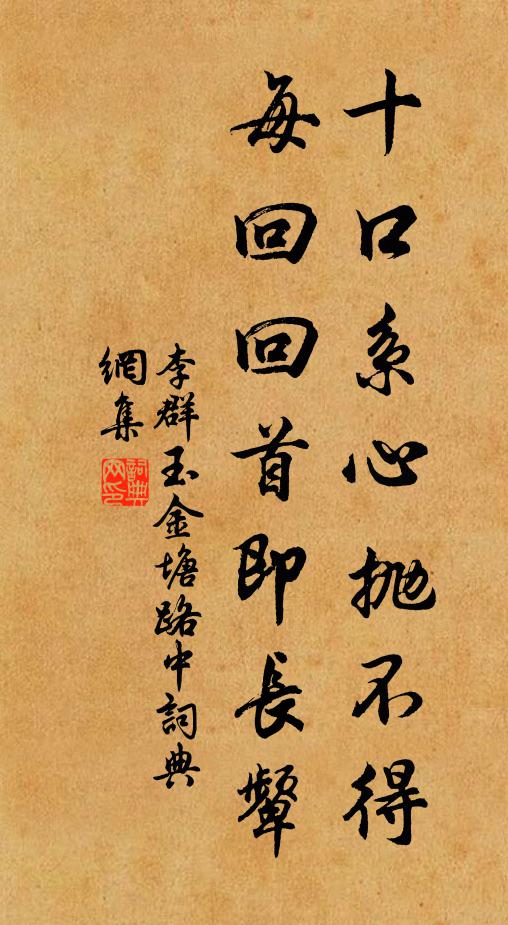 十口系心拋不得
每回回首即長顰
李群玉金塘路中詞典
網集
詞典網印